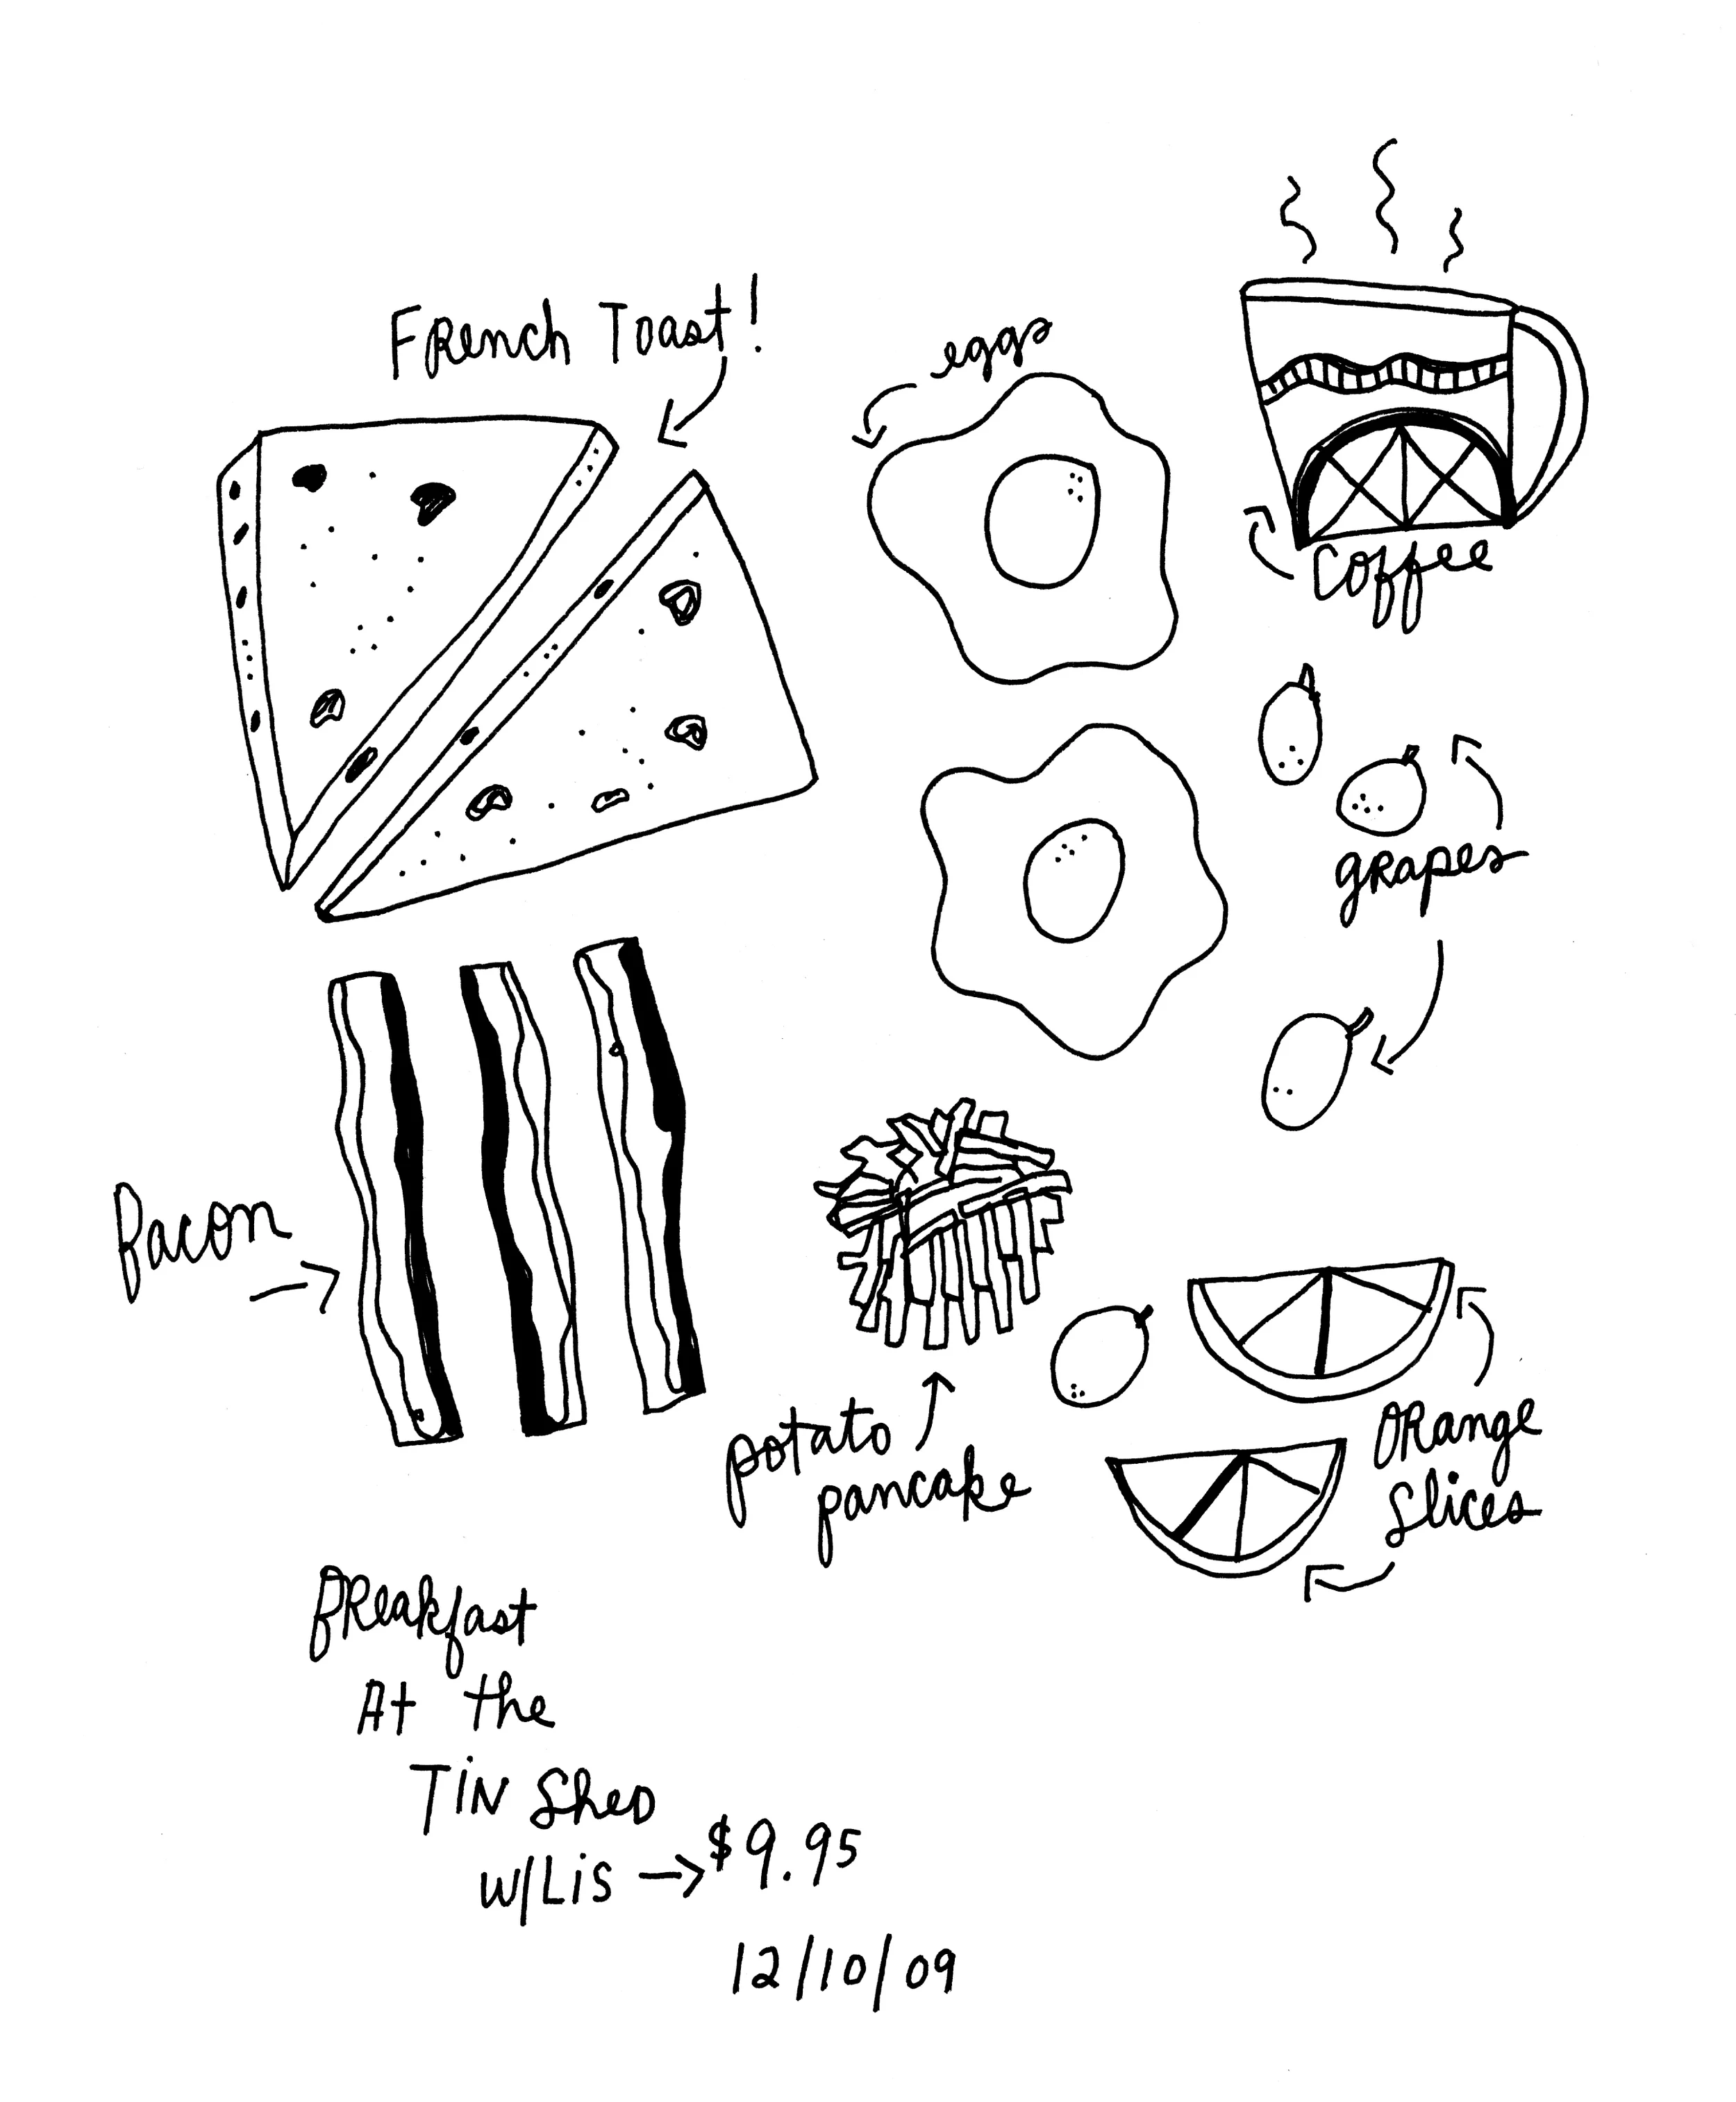 French Toast!
eggs
Coffee
grapes
Bacon
potato
pancake
Orange
Slices
Breakfast
At the
Tin Shed
w/Lis → $9.95
12/10/09